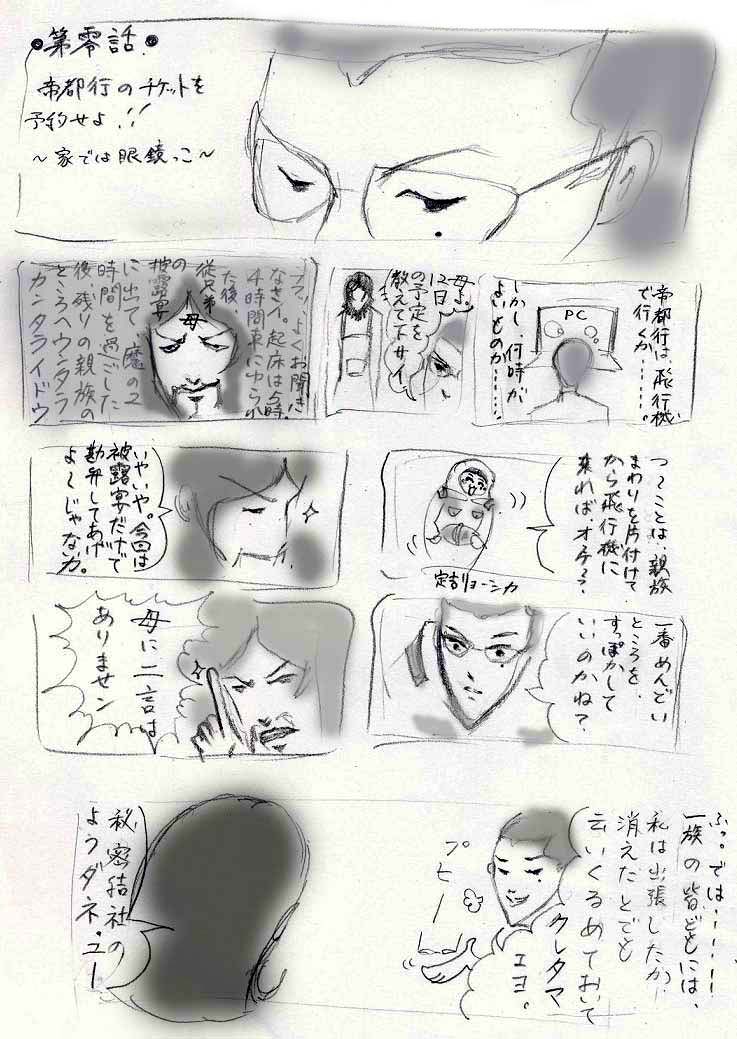 ・第零話・
帝都行のチケットを
予約せよ!!
~家では眼鏡っこ~
帝都行は、飛行機
で行くか………。
しかし、何時が
よいものか………。
PC
母よ。
12日
の予定を
教えて下サイ
フフ、よくお聞き
なさイ。起床は5時。
4時間車にゆられ
た後
従兄弟
の
披露宴
に出て、魔の2
時間を過ごした
後、残りの親族の
ところへウンタラ
カンタライドウ
母
つーことは、親族
まわりを片付けて
から飛行機に
乗ればオケイ?
定吉リョーシカ
いやいや。今回は
披露宴だけで
勘弁してあげ
よーじゃないカ。
一番めんどい
ところを、
すっぽかして
いいのかね?
母に二言は
ありませン
ふっ。では…………
一族の皆どもには、
私は出張したか
消えたとでも
云いくるめておいて
クレタマ
エヨ。
プヒー
秘密結社の
ようダネ。ユー